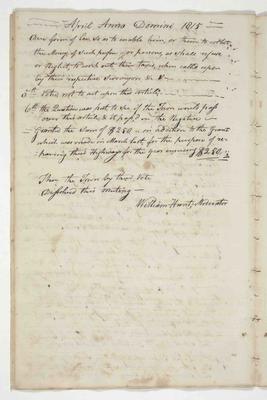 April Anno Domini 1815
due form of law so as to enable him, or them to collect
the Money of such person or persons as shall refuse
or Neglect, to work out their taxes, when called upon
by their respective Surveyors & c
5th Voted not to act upon this article
6th the Question was put to see if the Town would pass
over this article, & it passed in the Negative
Granted the Sum of $250 in addition to the Grant
which was made in March last, for the purpose of re-
pairing the Highways for the year ensuing $250
Then the Town by their Vote
dissolved this meeting
William Hunt, Moderator